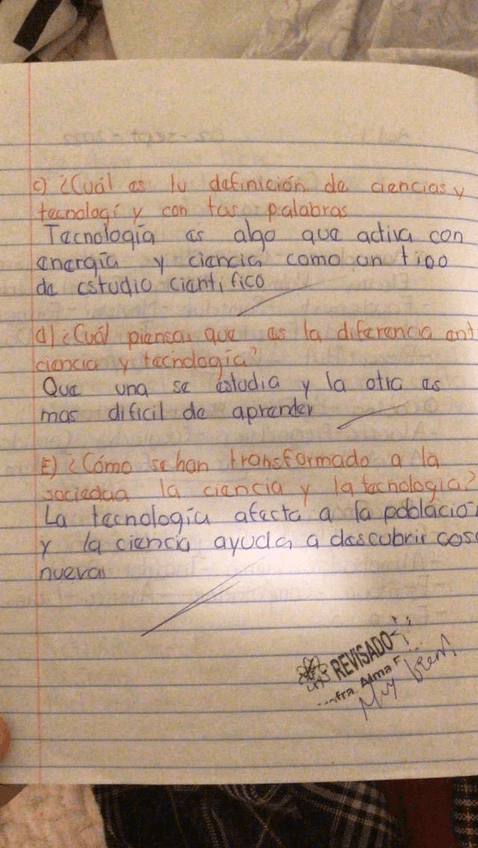 c) ¿Cuál es tu definición de ciencias y
tecnologí y con tus palabras
Tecnología es algo que activa con
energía y ciencia como un tipo
de estudio científico
d) ¿Cuál piensas que es la diferencia ent
ciencia y tecnología?
Que una se estudia y la otra es
mas dificil de aprender
E) ¿Cómo se han transformado a la
sociedua la ciencia y la tecnología?
La tecnología afecta a la poblacio
y la ciencia ayuda a descubrir cosa
nuevas
REVISADO
fra. Alma
Muy bien